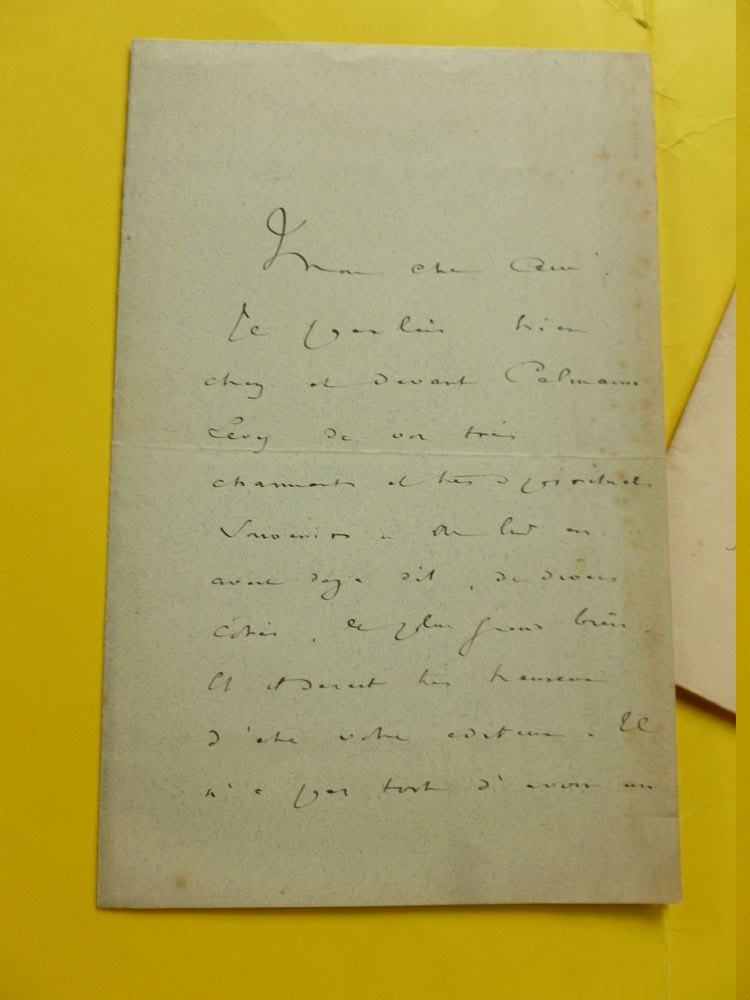 Mon cher Ami.
Je parlais hier
chez et devant Calmann
Lévy de vos très
charmants et très spirituels
Souvenirs. On lui en
avait deja dit, de divers
côtés, le plus grand bien.
Il serait très heureux
d'etre votre editeur. Il
n'a pas tort d'avoir un